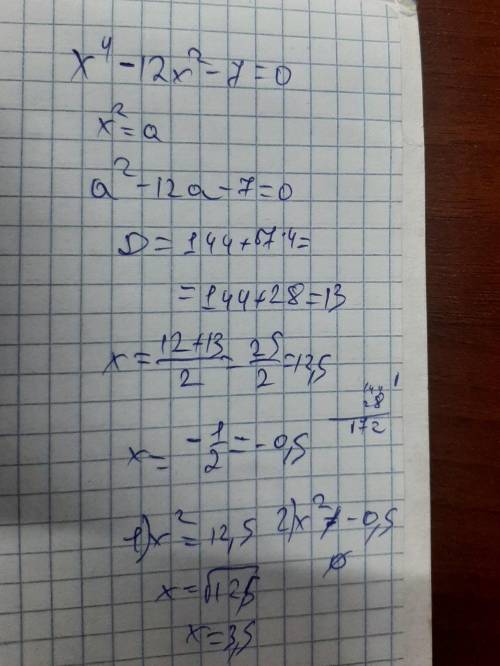 x⁴ - 12x² - 7 = 0
x² = a
a² - 12a - 7 = 0
D = 144 + 7·4 =
= 144 + 28 = 13
x = (12 + 13)/2 = 25/2 = 12,5
x = -1/2 = -0,5
144
28
172
1) x² = 12,5 2) x² ≠ -0,5
x = √12,5 ∅
x = 3,5